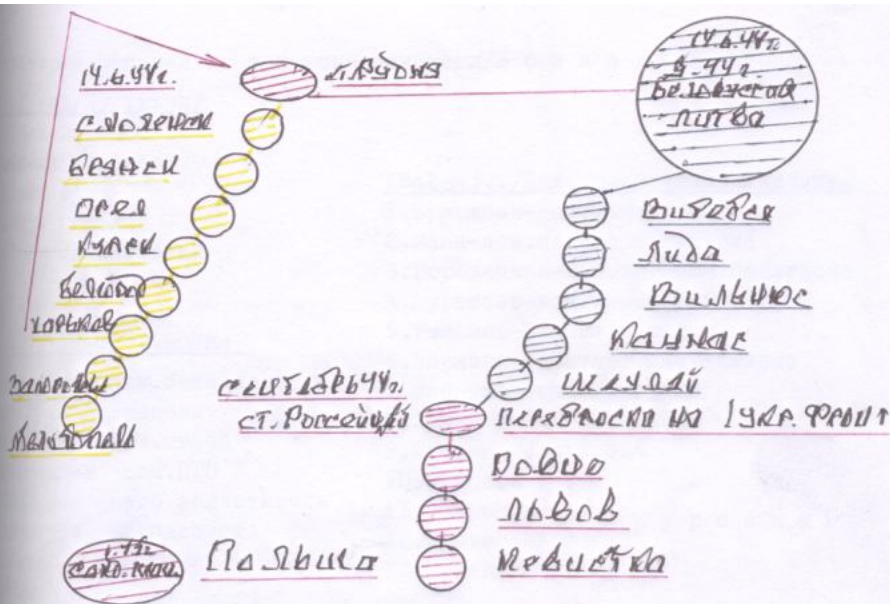 14.6.44г.
Смоленск
Брянск
Орел
Курск
Белгород
Харьков
Запорожье
Мелитополь
г. Рудня
14.6.44г.
9.44г.
Белоруссия
Литва
Витебск
Лида
Вильнюс
Каунас
Шяуляй
Сентябрь 44г.
ст. Россейняй
Переброска на 1 Укр. Фронт
Ровно
Львов
1.45г.
Санд. плац.
Польша